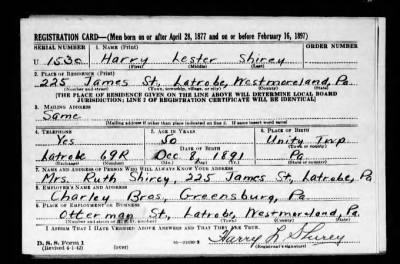 REGISTRATION CARD—(Men born on or after April 28, 1877 and on or before February 16, 1897)
SERIAL NUMBER 1. NAME (Print) ORDER NUMBER
U 1530 Harry Lester Shirey
(First) (Middle) (Last)
2. PLACE OF RESIDENCE (Print)
225 James St, Latrobe, Westmoreland, Pa.
(Number and street) (Town, township, village, or city) (County) (State)
[THE PLACE OF RESIDENCE GIVEN ON THE LINE ABOVE WILL DETERMINE LOCAL BOARD
JURISDICTION; LINE 2 OF REGISTRATION CERTIFICATE WILL BE IDENTICAL]
3. MAILING ADDRESS
Same
[Mailing address if other than place indicated on line 2. If same insert word same]
4. TELEPHONE 5. AGE IN YEARS 6. PLACE OF BIRTH
Yes 50 Unity Twp
DATE OF BIRTH (Town or county)
Latrobe 69R Dec 8, 1891 Pa.
(Exchange) (Number) (Mo.) (Day) (Yr.) (State or country)
7. NAME AND ADDRESS OF PERSON WHO WILL ALWAYS KNOW YOUR ADDRESS
Mrs. Ruth Shirey, 225 James St, Latrobe, Pa
8. EMPLOYER'S NAME AND ADDRESS
Charley Bros, Greensburg, Pa
9. PLACE OF EMPLOYMENT OR BUSINESS
Otterman St, Latrobe, Westmoreland, Pa.
(Number and street or R. F. D. number) (Town) (County) (State)
I AFFIRM THAT I HAVE VERIFIED ABOVE ANSWERS AND THAT THEY ARE TRUE.
D. S. S. Form 1
(Revised 4-1-42) (over) Harry L Shirey
(Registrant's signature)